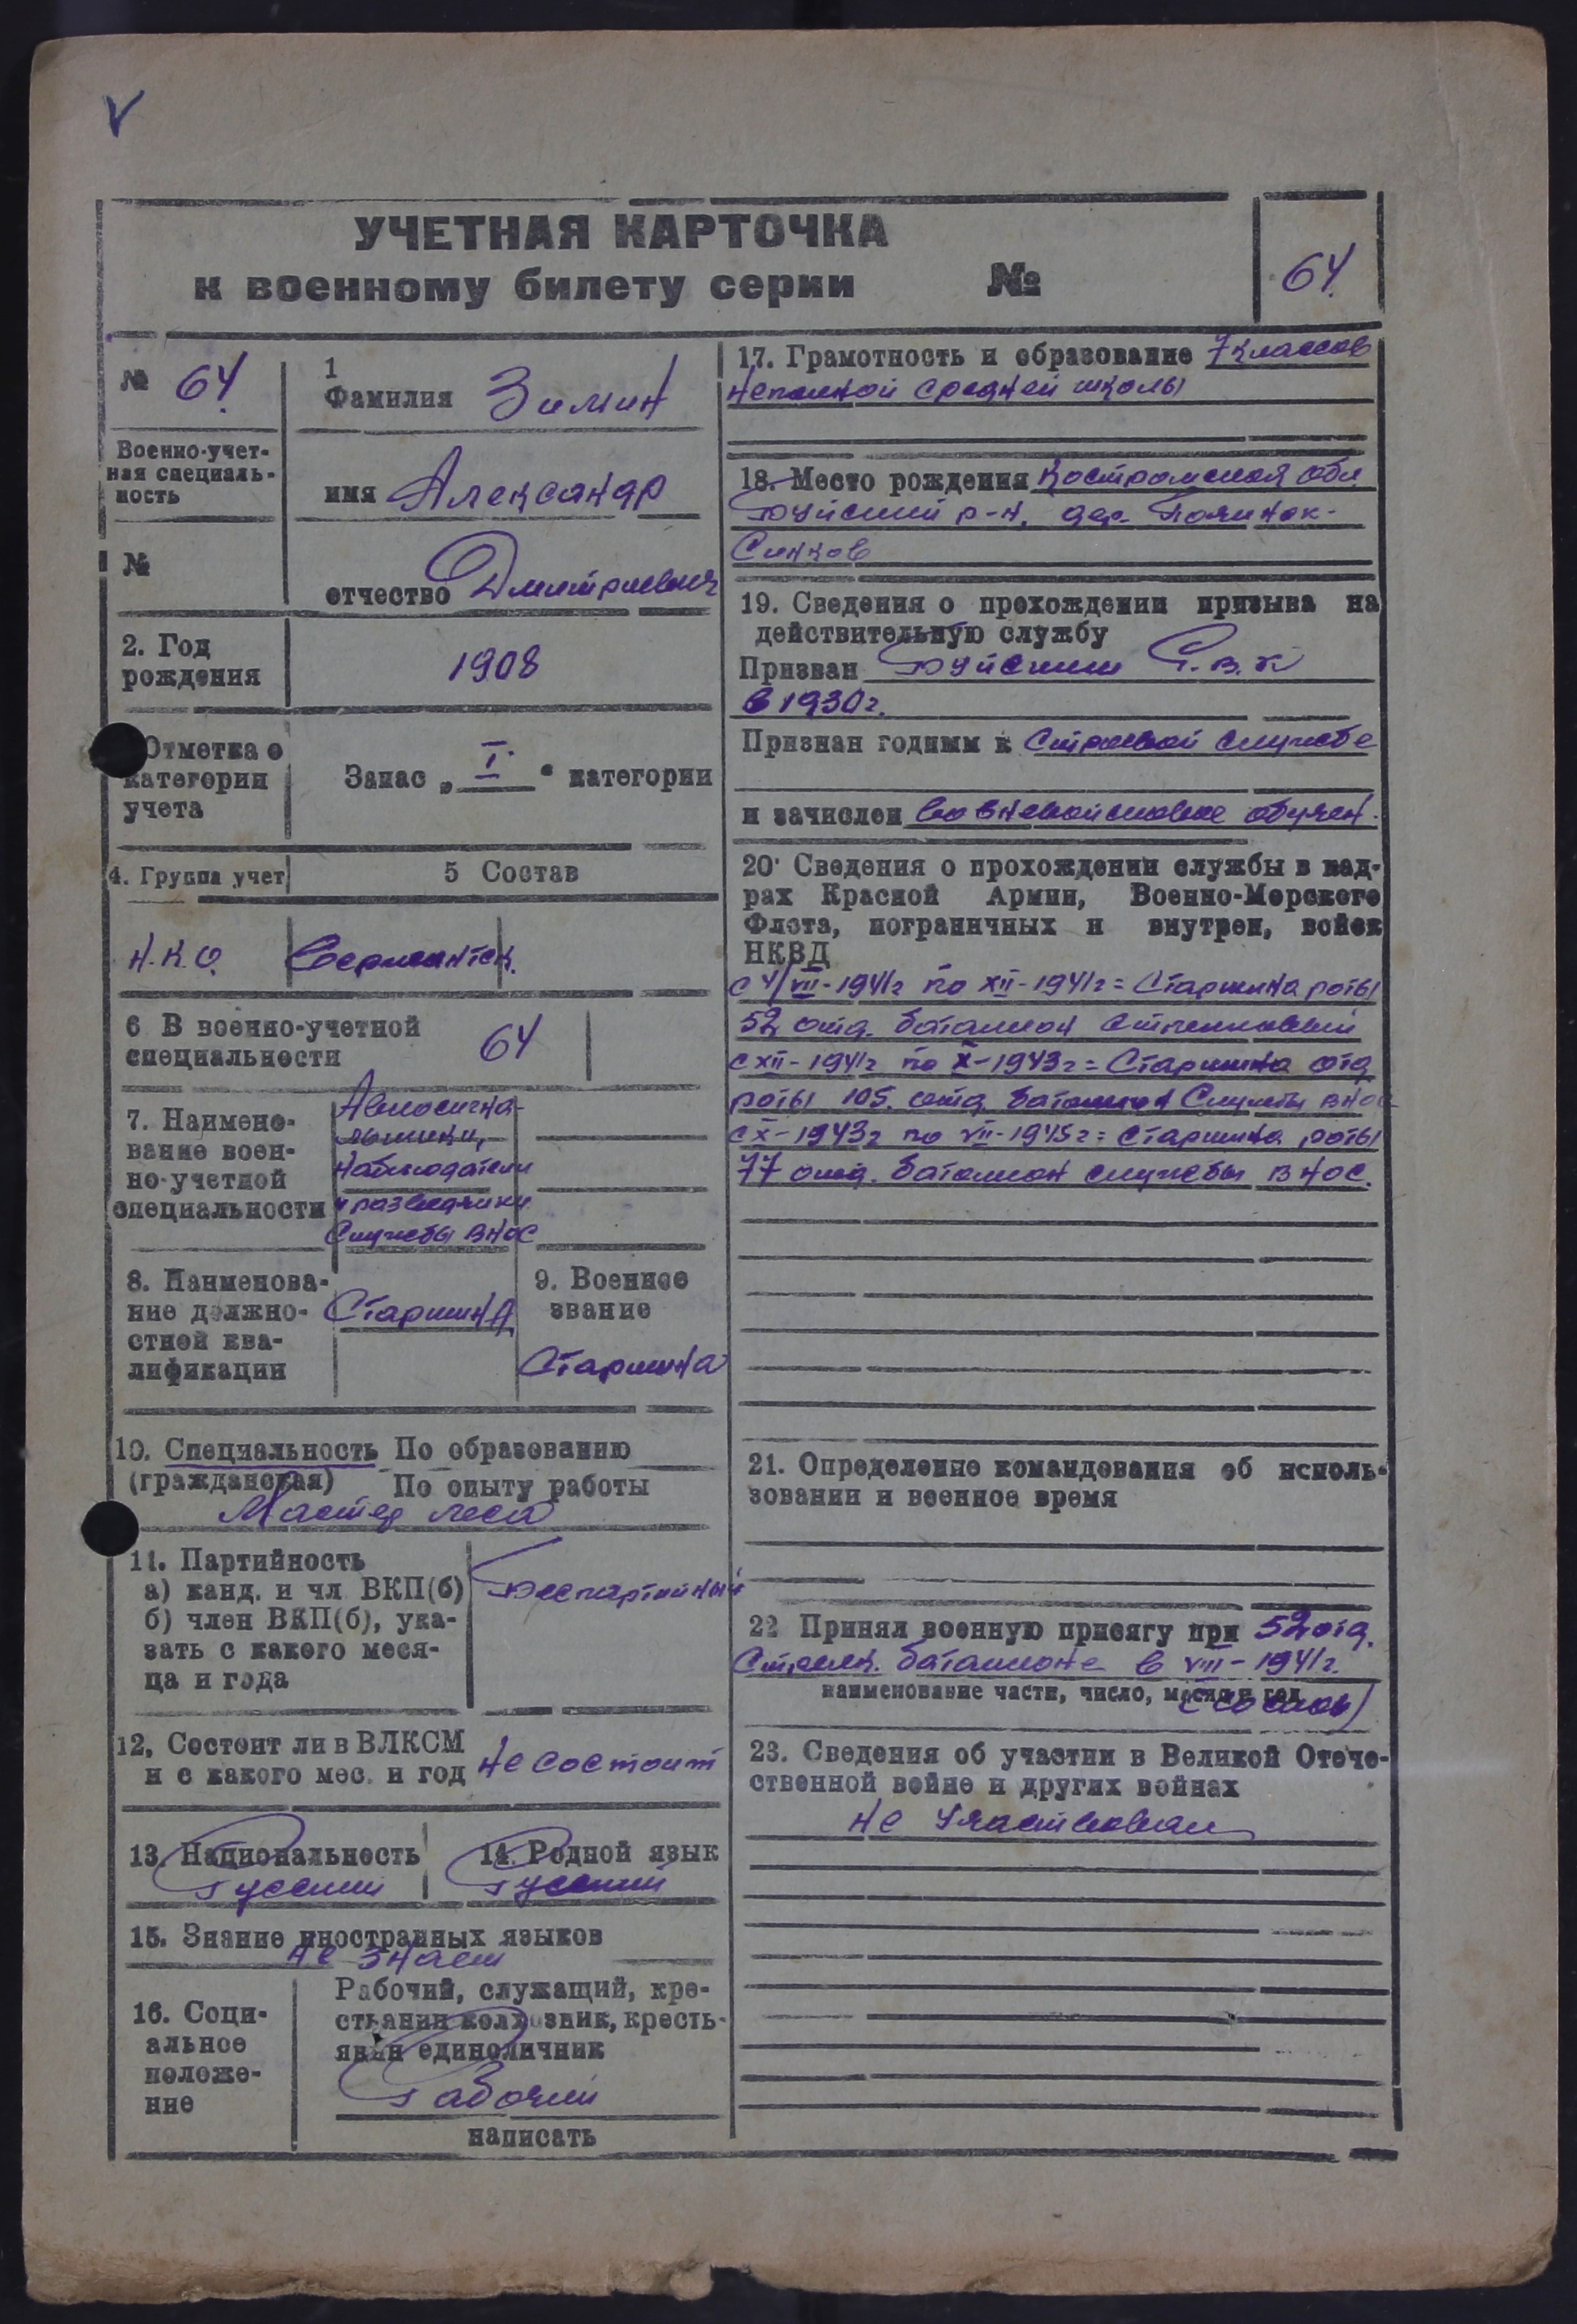 V
УЧЕТНАЯ КАРТОЧКА
к военному билету серии №
64.
№ 64.
1
Фамилия Зимин
Военно-учет-
ная специаль-
ность
имя Александр
№
отчество Дмитриевич
2. Год
рождения
1908
Отметка о
категории
учета
Запас „ I “ категории
4. Группа учет
5 Состав
Н.К.О.
Сержантск.
6 В военно-учетной
специальности
64
7. Наимено-
вание воен-
но-учетной
специальности
наблюдатели
и разведчики
Службы ВНОС
8. Наименова-
ние должно-
стной ква-
лификации
Старшина
9. Военное
звание
Старшина
10. Специальность По образованию
(гражданская) По опыту работы
Мастер леса
11. Партийность
а) канд. и чл ВКП(б)
б) член ВКП(б), ука-
зать с какого меся-
ца и года
Беспартийный
12, Состоит ли в ВЛКСМ
и с какого мес. и год
не состоит
13. Национальность
Русский
14. Родной язык
Русский
15. Знание иностранных языков
не знает
16. Соци-
альное
положе-
ние
Рабочий, служащий, кре-
стьянин колхозник, кресть-
янин единоличник
Рабочий
написать
17. Грамотность и образование 7 классов
неполной средней школы
18. Место рождения Костромская обл
Буйский р-н, дер.
19. Сведения о прохождении призыва на
действительную службу
Призван Буйским Р.В.К
в 1930г.
Признан годным к Строевой службе
и зачислен во вневойсковое обучен.
20· Сведения о прохождении службы в кад-
рах Красной Армии, Военно-Морского
Флота, пограничных и внутрен, войск
НКВД
с 4/VII-1941г по XII-1941г = Старшина роты
52 отд. батальон стрелковый
с XII-1941г по X-1943г = Старшина отд
роты 105. отд. батальон Службы ВНОС
с X-1943г по VII-1945г = Старшина роты
77 отд. батальон службы ВНОС.
21. Определение командования об исполь-
зовании и военное время
22 Принял военную присягу при 52 отд.
Стрелк. батальоне в VIII-1941г.
наименование части, число, месяц и год
(со слов)
23. Сведения об участии в Великой Отече-
ственной войне и других войнах
не участвовал